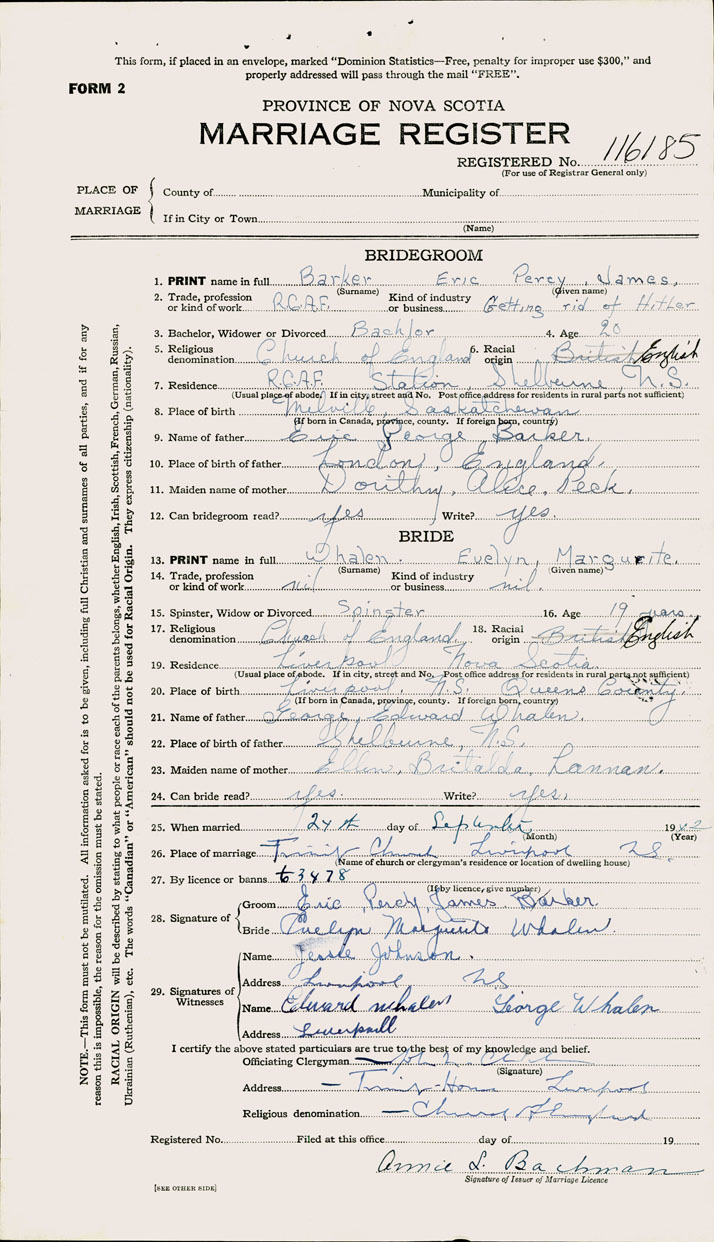 This form, if placed in an envelope, marked "Dominion Statistics—Free, penalty for improper use $300," and
properly addressed will pass through the mail "FREE".
FORM 2
PROVINCE OF NOVA SCOTIA
MARRIAGE REGISTER
REGISTERED No. 116185
(For use of Registrar General only)
PLACE OF MARRIAGE
County of Municipality of
If in City or Town
(Name)
BRIDEGROOM
1. PRINT name in full Barker Eric Percy James,
(Surname) (Given name)
2. Trade, profession or kind of work R.C.A.F. Kind of industry or business Getting rid of Hitler
3. Bachelor, Widower or Divorced Bachlor 4. Age 20
5. Religious denomination Church of England 6. Racial origin British English
7. Residence R.C.A.F. Station, Shelburne, N.S.
(Usual place of abode. If in city, street and No. Post office address for residents in rural parts not sufficient)
8. Place of birth Melville, Saskatchewan
(If born in Canada, province, county. If foreign born, country)
9. Name of father Eric George Barker.
10. Place of birth of father London, England.
11. Maiden name of mother Dorithy, Alice, Peck.
12. Can bridegroom read? yes Write? yes.
BRIDE
13. PRINT name in full Whalen. Evelyn, Margurite.
(Surname) (Given name)
14. Trade, profession or kind of work nil Kind of industry or business nil.
15. Spinster, Widow or Divorced Spinster 16. Age 19 years.
17. Religious denomination Church of England. 18. Racial origin British English
19. Residence Liverpool Nova Scotia.
(Usual place of abode. If in city, street and No. Post office address for residents in rural parts not sufficient)
20. Place of birth Liverpool, N.S. Queens County.
(If born in Canada, province, county. If foreign born, country)
21. Name of father George, Edward Whalen.
22. Place of birth of father Shelburne, N.S.
23. Maiden name of mother Ellen, Britalda, Lannan.
24. Can bride read? yes. Write? yes.
25. When married 24th day of September 1942
(Month) (Year)
26. Place of marriage Trinity Church Liverpool NS.
(Name of church or clergyman's residence or location of dwelling house)
27. By licence or banns 63478
(If by licence, give number)
28. Signature of
Groom Eric Percy James Barker
Bride Evelyn Margurite Whalen.
29. Signatures of Witnesses
Name Jessie Johnson.
Address Liverpool NS
Name Edward Whalen George Whalen
Address Liverpool
I certify the above stated particulars are true to the best of my knowledge and belief.
Officiating Clergyman
(Signature)
Address — Trinity House Liverpool
Religious denomination — Church of England
Registered No. Filed at this office day of 19
Annie L. Bachman
Signature of Issuer of Marriage Licence
[SEE OTHER SIDE]
NOTE.—This form must not be mutilated. All information asked for is to be given, including full Christian and surnames of all parties, and if for any
reason this is impossible, the reason for the omission must be stated.
RACIAL ORIGIN will be described by stating to what people or race each of the parents belongs, whether English, Irish, Scottish, French, German, Russian,
Ukrainian (Ruthenian), etc. The words "Canadian" or "American" should not be used for Racial Origin. They express citizenship (nationality).